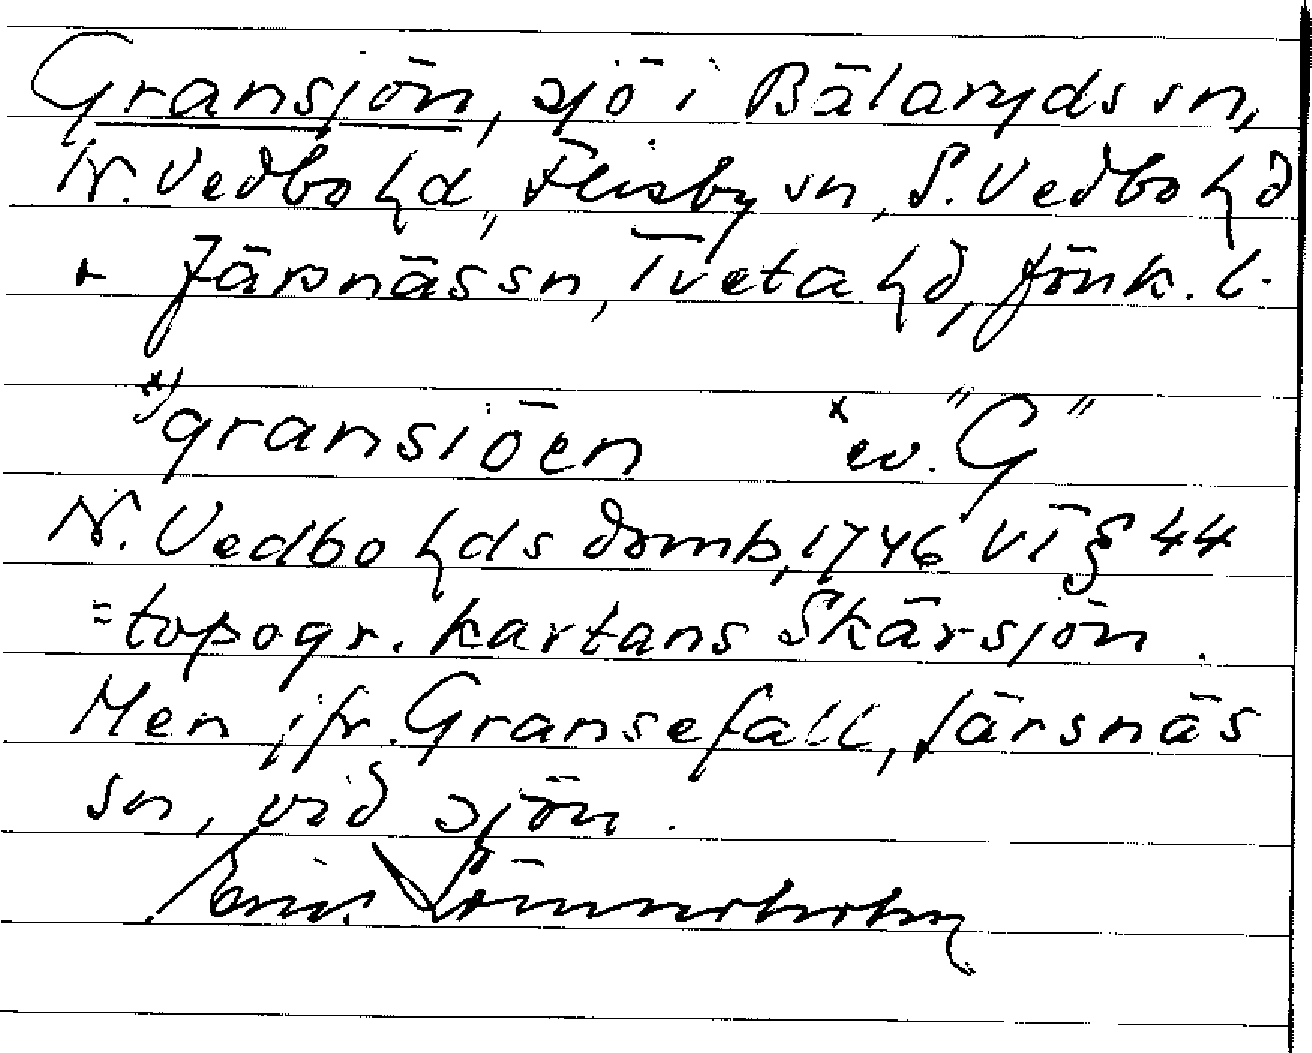 Gransjön, sjö i Bälaryds sn,
N. Vedbo hd, Flisby sn, S. Vedbo hd
+ Järsnäs sn, Tveta hd, Jönk. l.
x) gransiöen x ev. "G"
N. Vedbo hds domb, 1746 VT § 44
= topogr. kartans Skärsjön.
Men jfr. Gransefall, Järsnäs
sn, vid sjön.
Eric Lönnerholm